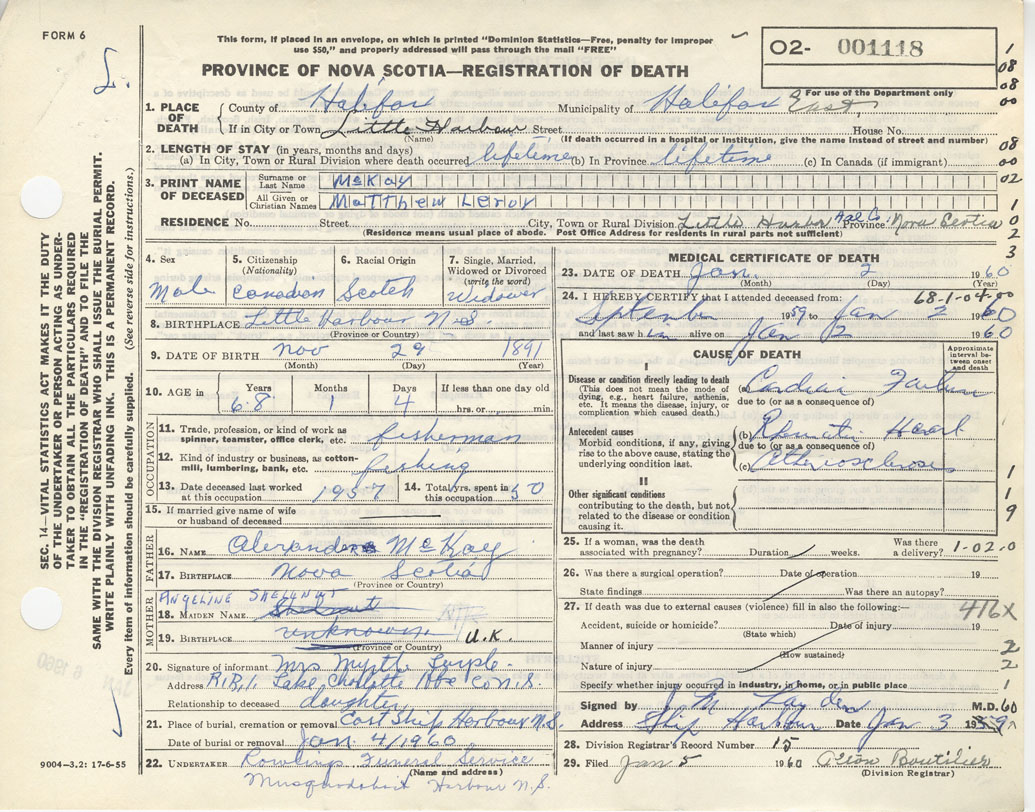 FORM 6
This form, if placed in an envelope, on which is printed "Dominion Statistics—Free, penalty for improper
use $50," and properly addressed will pass through the mail "FREE"
PROVINCE OF NOVA SCOTIA—REGISTRATION OF DEATH
O2- 001118
For use of the Department only
1. PLACE OF DEATH
County of Halifax Municipality of Halifax East
If in City or Town Little Harbour Street House No.
(Name) (If death occurred in a hospital or institution, give the name instead of street and number)
2. LENGTH OF STAY (in years, months and days)
(a) In City, Town or Rural Division where death occurred lifetime (b) In Province lifetime (c) In Canada (if immigrant)
3. PRINT NAME OF DECEASED
Surname or Last Name McKay
All Given or Christian Names Matthew Leroy
RESIDENCE No. Street City, Town or Rural Division Little Harbor Hfx Co. Province Nova Scotia
(Residence means usual place of abode. Post Office Address for residents in rural parts not sufficient)
4. Sex Male
5. Citizenship (Nationality) Canadian
6. Racial Origin Scotch
7. Single, Married, Widowed or Divorced (write the word) Widower
8. BIRTHPLACE Little Harbour N.S.
(Province or Country)
9. DATE OF BIRTH Nov 29 1891
(Month) (Day) (Year)
10. AGE in Years 68 Months 1 Days 4 If less than one day old hrs. or min.
OCCUPATION
11. Trade, profession, or kind of work as spinner, teamster, office clerk, etc. fisherman
12. Kind of industry or business, as cotton-mill, lumbering, bank, etc. fishing
13. Date deceased last worked at this occupation 1957
14. Total yrs. spent in this occupation 50
15. If married give name of wife or husband of deceased
FATHER
16. NAME Alexander McKay
17. BIRTHPLACE Nova Scotia
(Province or Country)
MOTHER
ANGELINE SHELLNUT
18. MAIDEN NAME
19. BIRTHPLACE unknown U.K.
(Province or Country)
20. Signature of informant Mrs Myrtle
Address R.R.1, Lake Charlotte Hfx Co N.S.
Relationship to deceased daughter
21. Place of burial, cremation or removal East Ship Harbour N.S.
Date of burial or removal Jan. 4/1960
22. UNDERTAKER Rowlings Funeral Service
(Name and address)
Musquodoboit Harbour N.S.
MEDICAL CERTIFICATE OF DEATH
23. DATE OF DEATH Jan. 2 1960
(Month) (Day) (Year)
68-1-04-00
24. I HEREBY CERTIFY that I attended deceased from:
September 1959 to Jan 2 1960
and last saw him alive on Jan 2 1960
CAUSE OF DEATH
Approximate interval between onset and death
I
Disease or condition directly leading to death
(This does not mean the mode of dying, e.g., heart failure, asthenia, etc. It means the disease, injury, or complication which caused death.)
(a) Cardiac Failure
due to (or as a consequence of)
Antecedent causes
Morbid conditions, if any, giving rise to the above cause, stating the underlying condition last.
(b) Rheumatic Heart
due to (or as a consequence of)
(c) Atherosclerosis
II
Other significant conditions
contributing to the death, but not related to the disease or condition causing it.
25. If a woman, was the death associated with pregnancy? Duration weeks. Was there a delivery? 1-02-0
26. Was there a surgical operation? Date of operation 19
State findings Was there an autopsy?
27. If death was due to external causes (violence) fill in also the following:— 416X
Accident, suicide or homicide? Date of injury 19
(State which)
Manner of injury
(How sustained)
Nature of injury
Specify whether injury occurred in industry, in home, or in public place
Signed by M.D.
Address Ship Harbour Date Jan 3 19
28. Division Registrar's Record Number 15
29. Filed Jan 5 1960 Boutilier
(Division Registrar)
SEC. 14—VITAL STATISTICS ACT MAKES IT THE DUTY
OF THE UNDERTAKER OR PERSON ACTING AS UNDER-
TAKER TO OBTAIN ALL THE PARTICULARS REQUIRED
IN THE "REGISTRATION OF DEATH" AND TO FILE THE
SAME WITH THE DIVISION REGISTRAR WHO SHALL ISSUE THE BURIAL PERMIT.
WRITE PLAINLY WITH UNFADING INK. THIS IS A PERMANENT RECORD.
Every item of information should be carefully supplied. (See reverse side for instructions.)
9004-3.2: 17-6-55
1
08
08
00
08
00
02
1
0
2
3
1
1
9
2
2
1
60